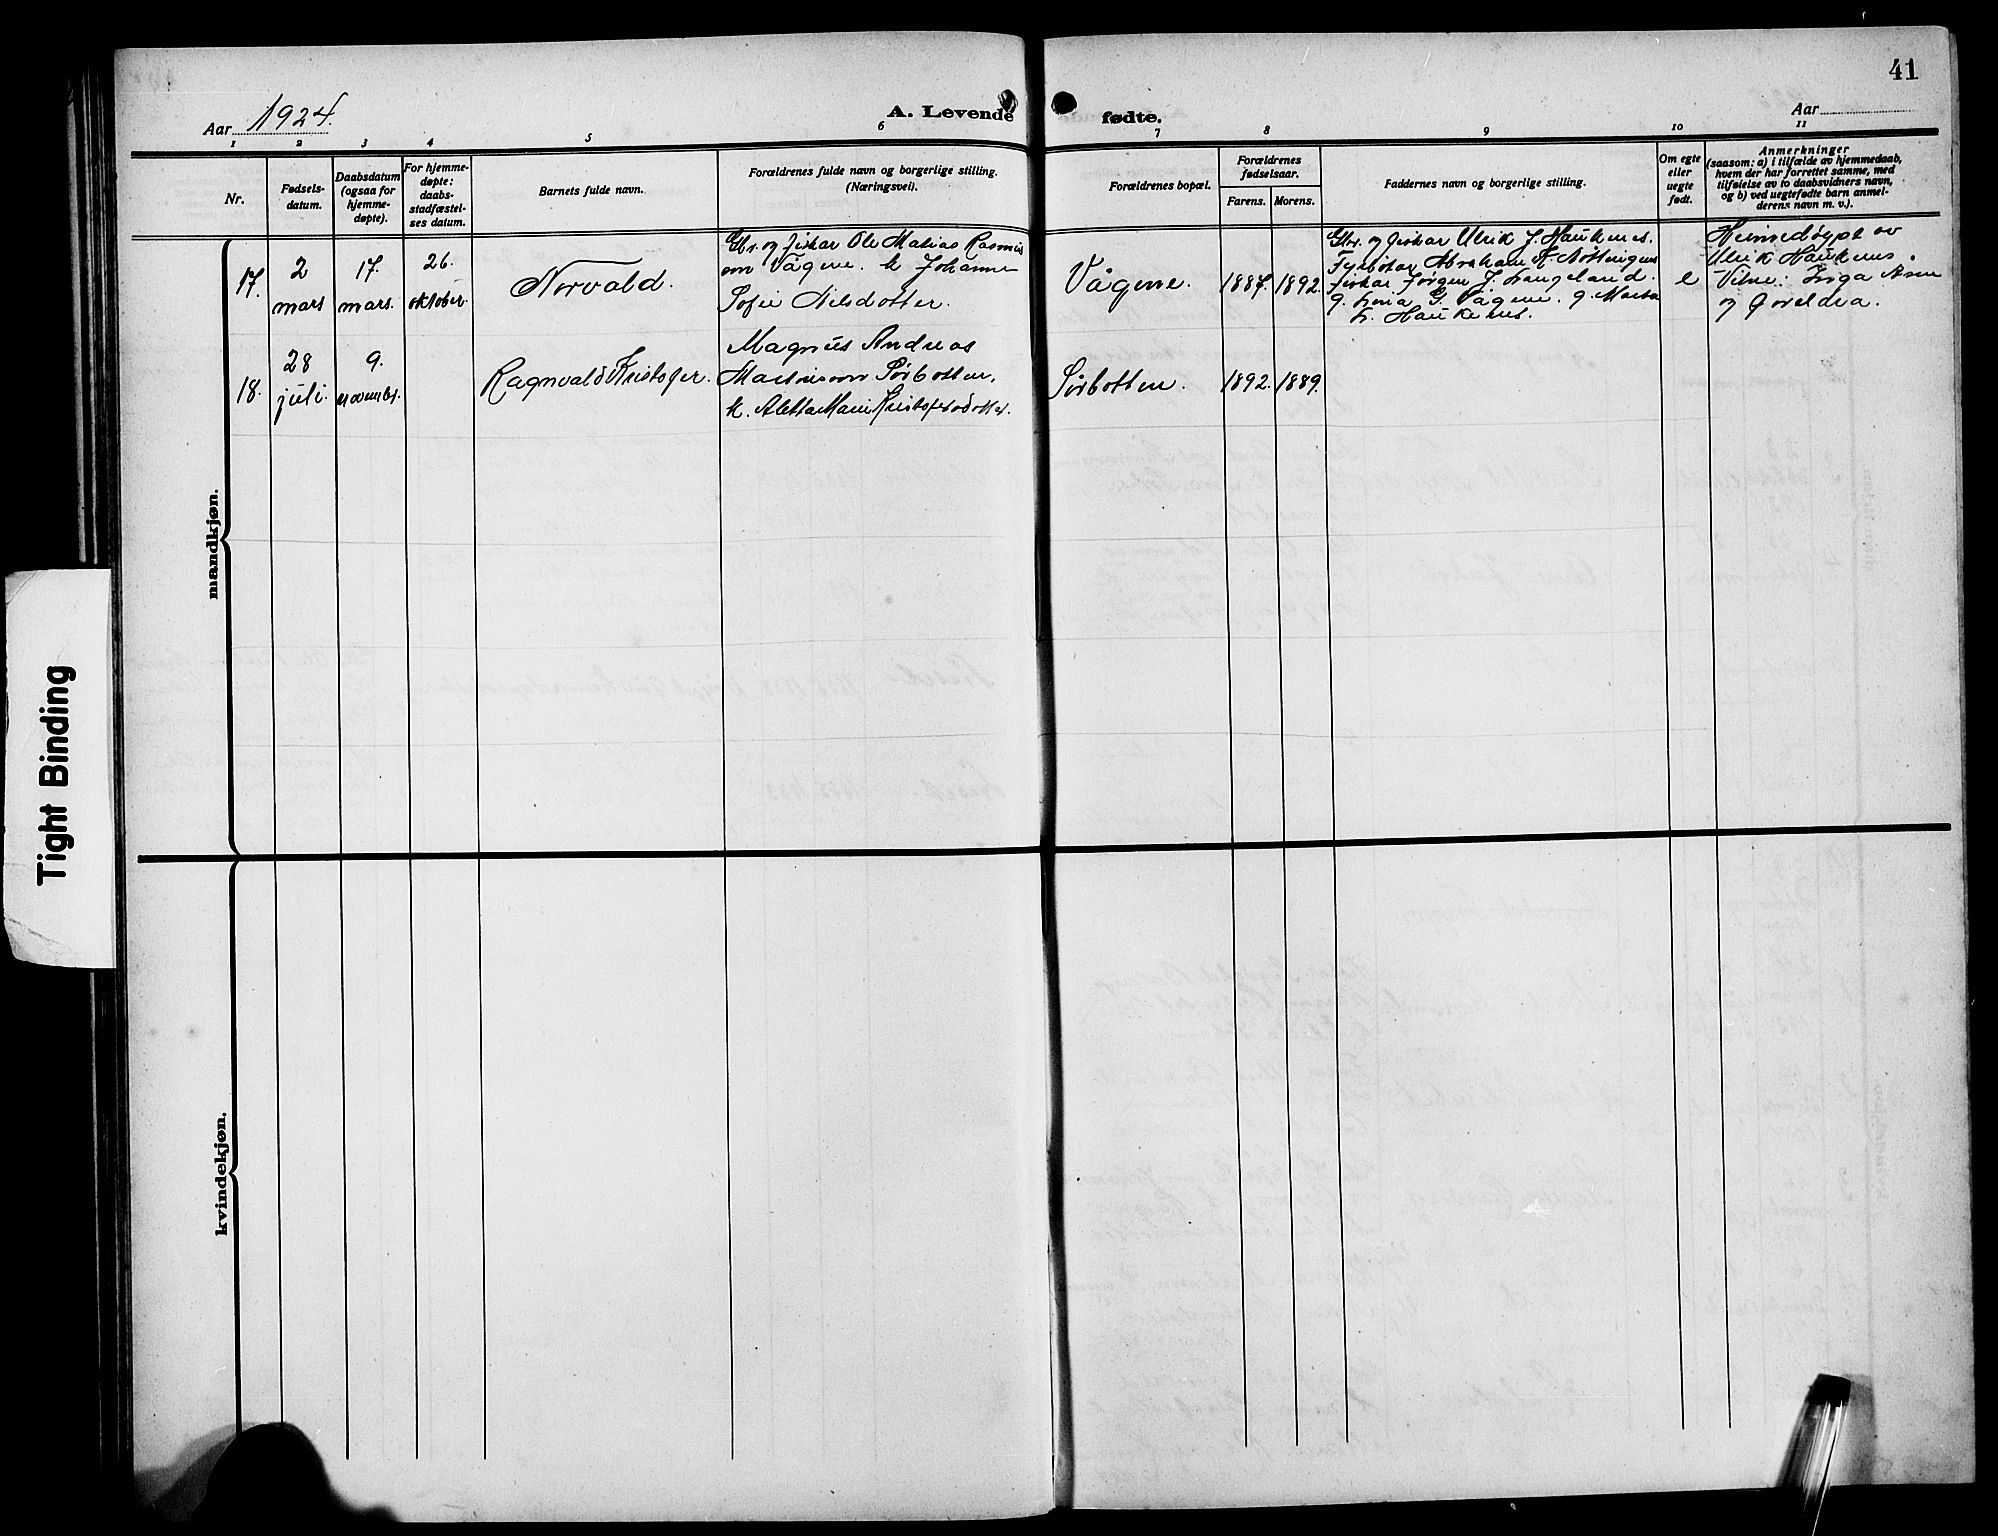 41
Aar 1924.
A. Levende fødte.
Aar
1 2 3 4 5 6 7 8 9 10 11
Nr.
Fødsels-
datum.
Daabsdatum
(ogsaa for
hjemme-
døpte).
For hjemme-
døpte:
daabs-
stadfæstel-
ses datum.
Barnets fulde navn.
Forældrenes fulde navn og borgerlige stilling.
(Næringsvei).
Forældrenes bopæl.
Forældrenes
fødselsaar.
Farens.
Morens.
Faddernes navn og borgerlige stilling.
Om egte
eller
uegte
født.
Anmerkninger
(saasom: a) i tilfælde av hjemmedaab,
hvem der har forrettet samme, med
tilføielse av to daabsvidners navn,
og b) ved uegtefødte barn anmel-
derens navn m. v.).
mandkjøn.
17.
2
mars
17.
mars.
26.
oktober
Norvald.
Gbr. og fiskar Ole Matias Rasmus
son Vågene. k Johanne
Sofie Nilsdotter.
Vågene.
1887.
1892.
Gbr. og fiskar Ulrik J. Haukenes.
Fyrbøtar Abraham
fiskar Jørgen J. Langeland.
g. Lovia G. Vågene. g. Marta
L. Haukenes.
e
Heimedøypt av
Ulrik Haukenes.
Vitne: Inga
og foreldra.
18.
28
juli.
9.
novembr.
Ragnvald Kristofer.
Magnus Andreas
Martinsson Sørbotten,
k. Aletta Marie Kristofersdotter.
Sørbotten.
1892.
1889.
kvindekjøn.
Tight Binding